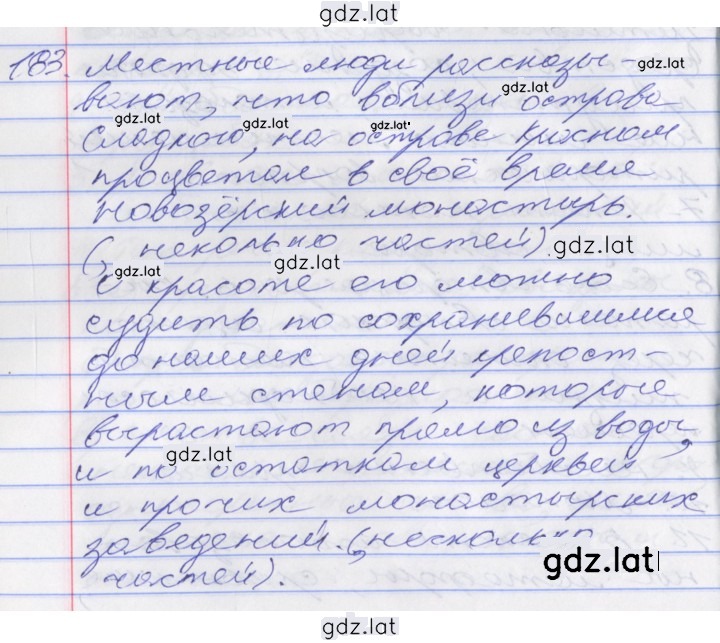 gdz.lat
183. Местные люди рассказы-
gdz.lat
вают, что вблизи острова
gdz.lat gdz.lat gdz.lat
Сладкого, на острове Красном
процветал в своё время
Новозёрский монастырь.
(, несколько частей).
gdz.lat gdz.lat gdz.lat
О красоте его можно
судить по сохранившимся
до наших дней крепост-
gdz.lat
ным стенам, которые
вырастают прямо из воды,
gdz.lat
и по остаткам церквей
и прочих монастырских
заведений. (несколько
gdz.lat
частей).
gdz.lat